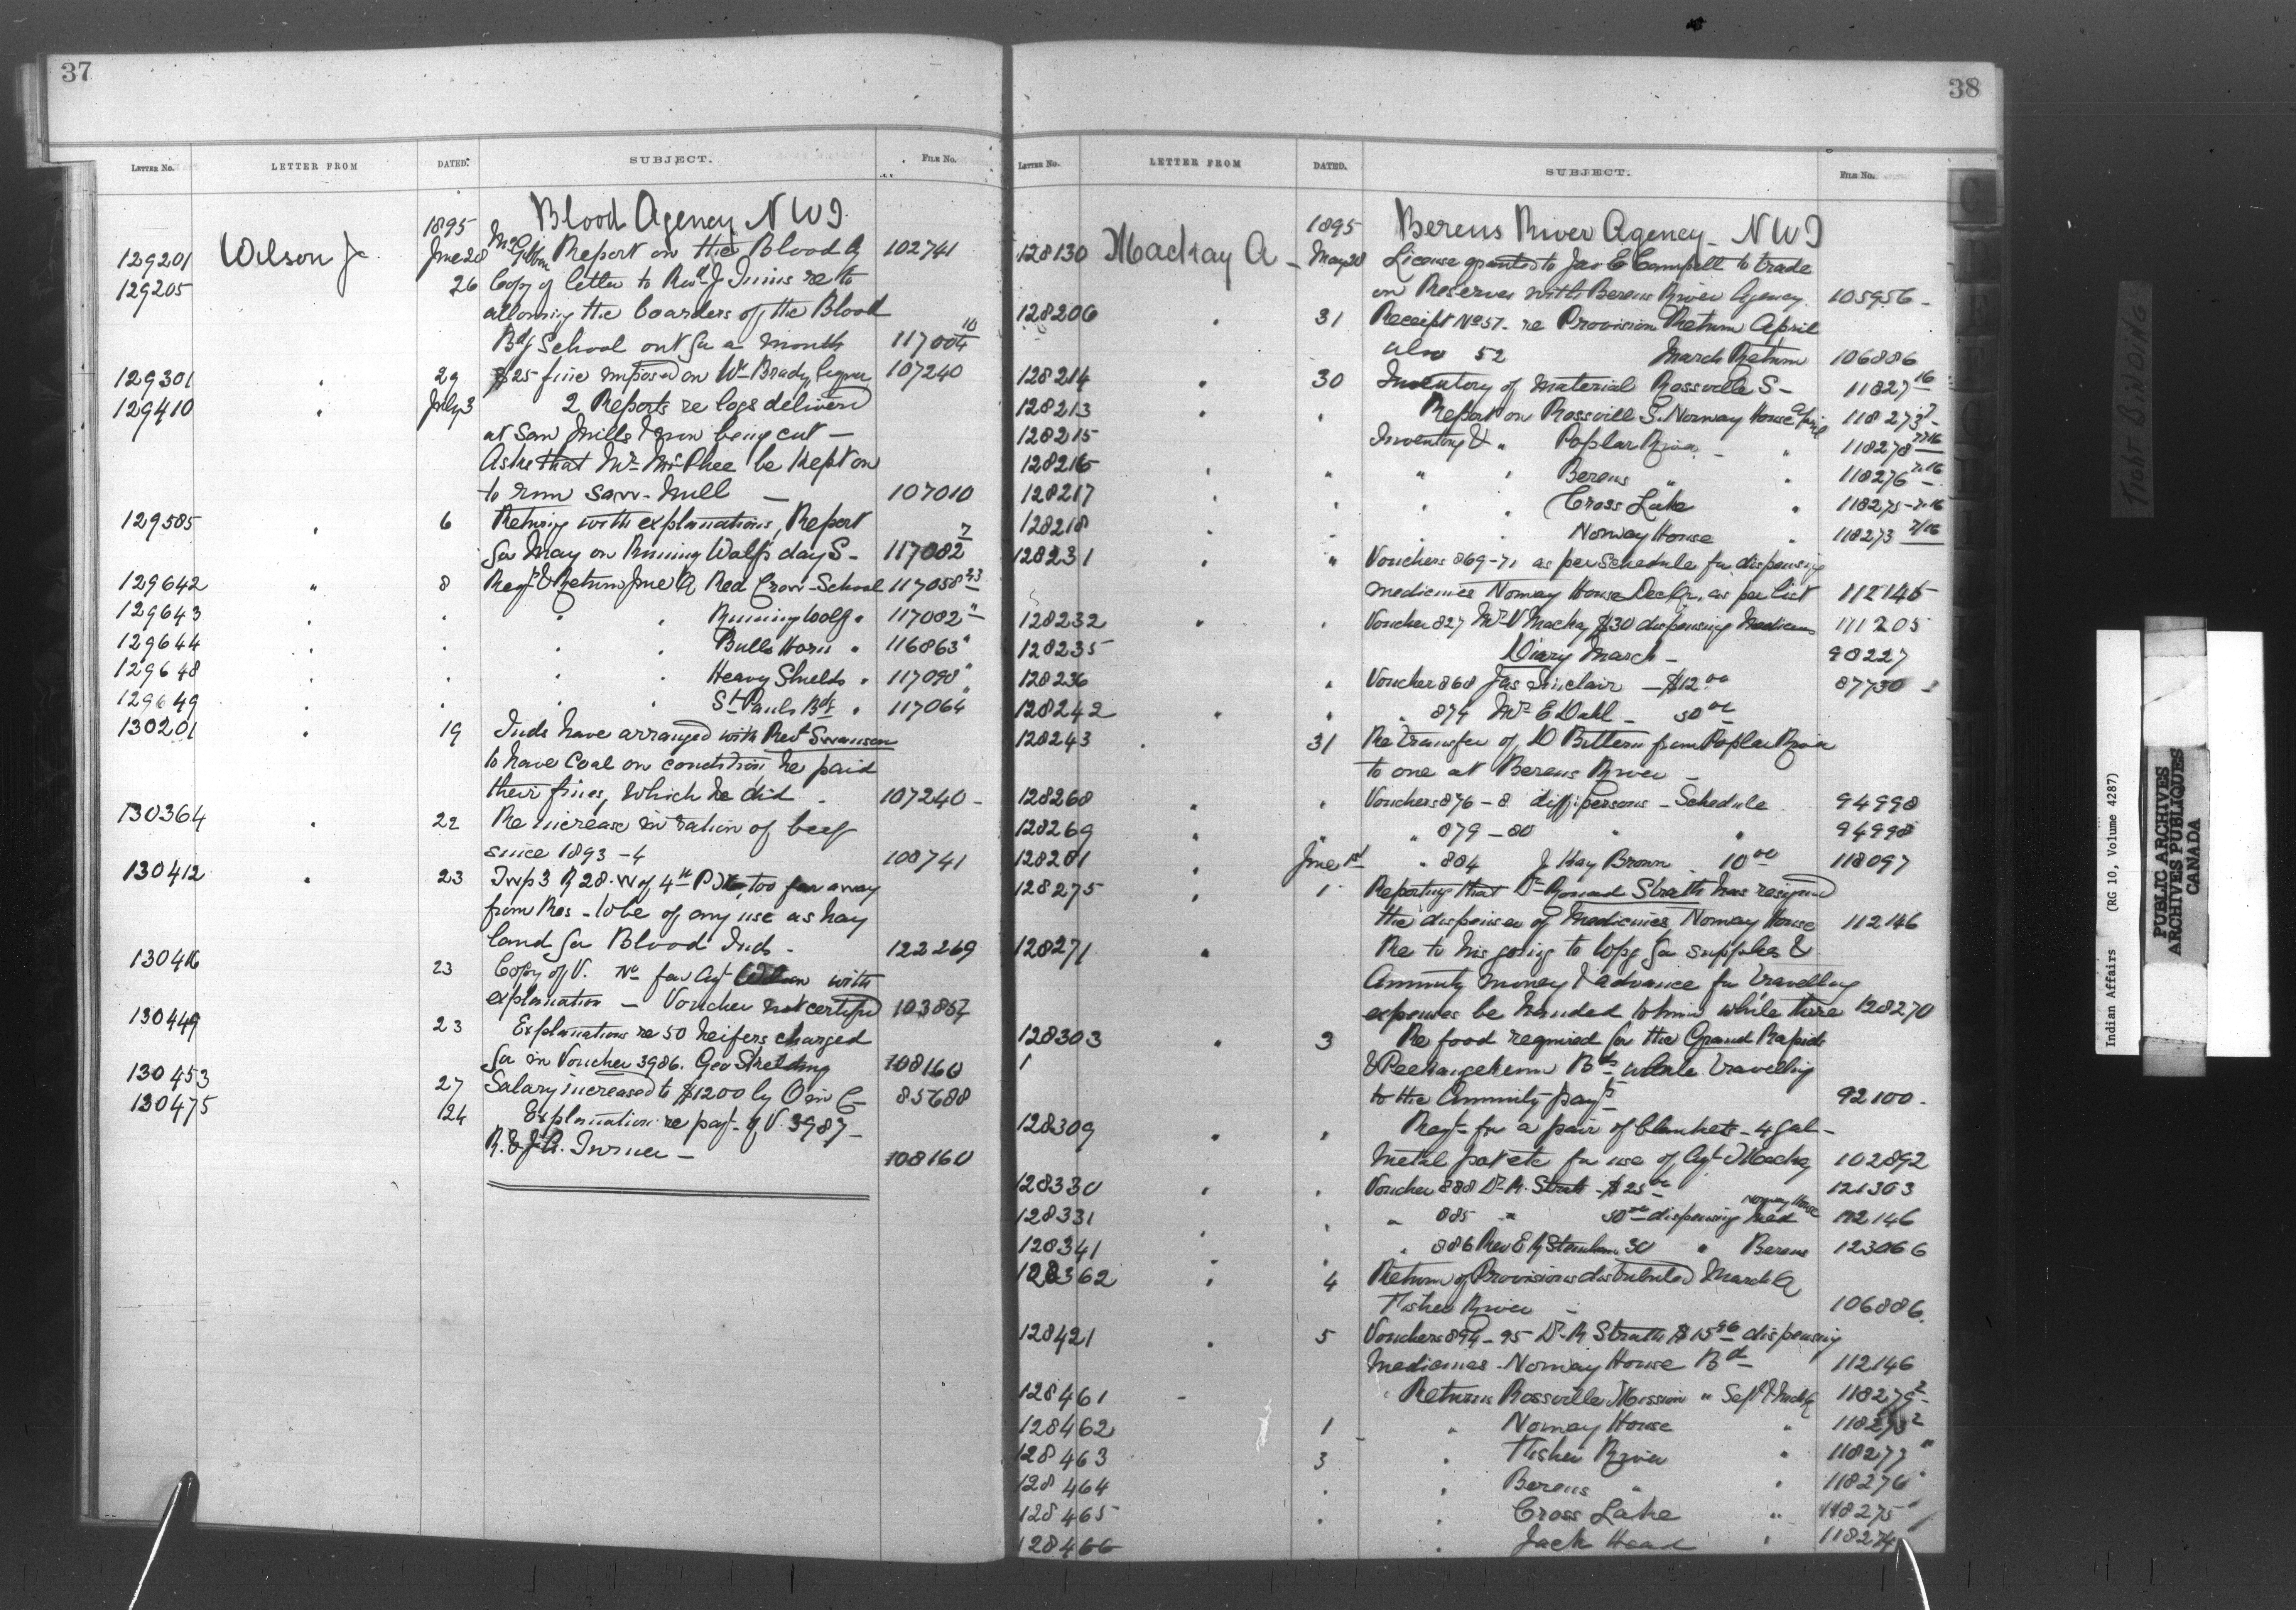 37
LETTER No. LETTER FROM DATED. SUBJECT. FILE No.
Blood Agency NWT
1895
129201 Wilson J June 28 McGibbon Report on the Blood A 102741
129205 26 Copy of letter to Revd J Inins re to
allowing the boarders of the Blood
Bdg School out for a month 117004 10
129301 " 29 $25 fine imposed on Wm Brady liquor 107240
129410 " July 3 2 Reports re logs delivered
at Saw Mills & now being cut —
Asks that Mr McPhee be kept on
to run Saw-Mill — 107010
129585 " 6 Returing with explanations, Report
for May on Running Wolfs day S- 117082 7
129642 " 8 Regr & Return June Q Red Crow-School 117058 23
129643 " " " " Running Wolfs " 117082 "
129644 " " " Bulls Horn " 116863 "
129648 " " " Heavy Shields " 117090 "
129649 " " " St Pauls Bdg " 117064 "
130201 " 19 Inds have arranged with Revt Swanson
to have Coal on condition he paid
their fines, which he did - 107240 -
130364 " 22 Re increase in ration of beef
since 1893-4 108741
130412 " 23 Twp 3 R 28. W of 4th P M too far away
from Res - to be of any use as hay
land for Blood Inds - 122269
130416 23 Copy of V. No for Agt Wilson with
explanation — Voucher not certified 103867
130449 23 Explanations re 50 heifers charged
for in Voucher 3986. Geo Skelding 108160
130453 27 Salary increased to $1200 by O in C- 85688
130475 124 Explanation re payt of V. 3987 -
R. & J A. Turner — 108160
38
LETTER No. LETTER FROM DATED. SUBJECT. FILE No.
1895 Berens River Agency - NWT
128130 Mackay A - May 28 License granted to Jas E Campell to trade
on Reserves with Berens River Agency. 105956 -
128206 " 31 Receipt No 51. re Provision Return April
also 52 March Return 106886
128214 " 30 Inventory of material Rossville S- 11827 16
128213 " " Report on Rossville S. Norway House April 118273 7
128215 Inventory & " Poplar River - " 118278 7.16
128216 " " " " Berens " " 118276 7.16
128217 " " " " Cross Lake " 118275 - 7.16
128218 " " " Norway House " 118273 7/16
128231 " " Vouchers 869-71 as per Schedule for dispensing
medicines Norway House Dec Qr, as per list 112146
128232 " " Voucher 827 Mr V Mackay $30 dispensing Medicines 111205
128235 Diary March - 90227
128236 " Voucher 868 Jas Sinclair — $12.00 87730
128242 " " " 874 Mr E Dahl - 30.00
128243 " 31 Re transfer of D Bittern from Poplar River
to one at Berens River -
128268 " " Vouchers 876-8 diff. persons - Schedule 94998
128269 " " " 879-80 " " 94998
128281 " June 1st " 884 J Kay Brown 10.00 118097
128275 " 1 Reporting that Dr Ronand Strath has resigned
the dispenser of Medicines, Norway House 112146
128271 " Re to his going to Wpg for supplies &
Annuity money & advance for travelling
expenses be handed to him while there 128270
128303 " 3 Re food required for the Grand Rapids
& Peekangekum Bds while travelling
to the Annuity payts 92100 -
128309 " " Reqt for a pair of blankets - 4 gal -
metal pot etc for use of Agt Mackay 102892
128330 " " Voucher 888 Dr R. Strath - $25.00 121303
128331 " " 885 " 50.00 dispensing Med Norway House 112146
128341 " " " 886 Rev E R Steinhauer 30 " Berens 123066
128362 " 4 Return of Provisions distributed March Q
Fisher River - 106886.
128421 " 5 Vouchers 894-95 Dr R Strath $15.96 dispensing
Medicines - Norway House Bd 112146
128461 - " Returns Rossville Mission " Sept & Mch Q 118279 2
128462 1 " Norway House " 118273 2
128463 3 " Fisher River " 118277 "
128464 " " Berens " " 118276 "
128465 " " Cross Lake " 118275 "
128466 " Jack Head " 118274
C
TIGHT BINDING
Indian Affairs (RG 10, Volume 4287)
PUBLIC ARCHIVES
ARCHIVES PUBLIQUES
CANADA